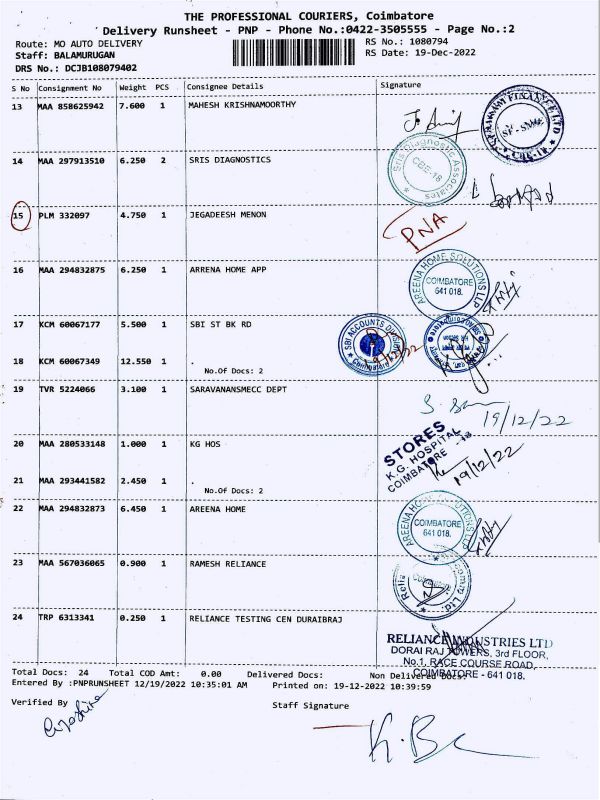 THE PROFESSIONAL COURIERS, Coimbatore
Delivery Runsheet - PNP - Phone No.:0422-3505555 - Page No.:2
Route: MO AUTO DELIVERY
RS No.: 1080794
Staff: BALAMURUGAN
RS Date: 19-Dec-2022
DRS No.: DCJB108079402
S No Consignment No Weight PCS Consignee Details Signature
13 MAA 858625942 7.600 1 MAHESH KRISHNAMOORTHY
CBE-18
14 MAA 297913510 6.250 2 SRIS DIAGNOSTICS
Sris Diagnostic Associates
CBE-18
15 PLM 332097 4.750 1 JEGADEESH MENON
PNA
16 MAA 294832875 6.250 1 ARRENA HOME APP
AREENA HOME SOLUTIONS LLP
COIMBATORE
641 018.
17 KCM 60067177 5.500 1 SBI ST BK RD
SBI ACCOUNTS DIVISION
Coimbatore
19/12/22
18 KCM 60067349 12.550 1
No.Of Docs: 2
19 TVR 5224066 3.100 1 SARAVANANSMECC DEPT
19/12/22
20 MAA 280533148 1.000 1 KG HOS
STORES
K.G. HOSPITAL
COIMBATORE - 18
19/12/22
21 MAA 293441582 2.450 1 .
No.Of Docs: 2
22 MAA 294832873 6.450 1 AREENA HOME
AREENA HOME SOLUTIONS LLP
COIMBATORE
641 018.
23 MAA 567036065 0.900 1 RAMESH RELIANCE
24 TRP 6313341 0.250 1 RELIANCE TESTING CEN DURAIBRAJ
RELIANCE INDUSTRIES LTD
DORAI RAJ TOWERS, 3rd FLOOR,
No.1, RACE COURSE ROAD,
COIMBATORE - 641 018.
Total Docs: 24 Total COD Amt: 0.00 Delivered Docs: Non Delivered Docs:
Entered By :PNPRUNSHEET 12/19/2022 10:35:01 AM Printed on: 19-12-2022 10:39:59
Verified By
Staff Signature
K.B